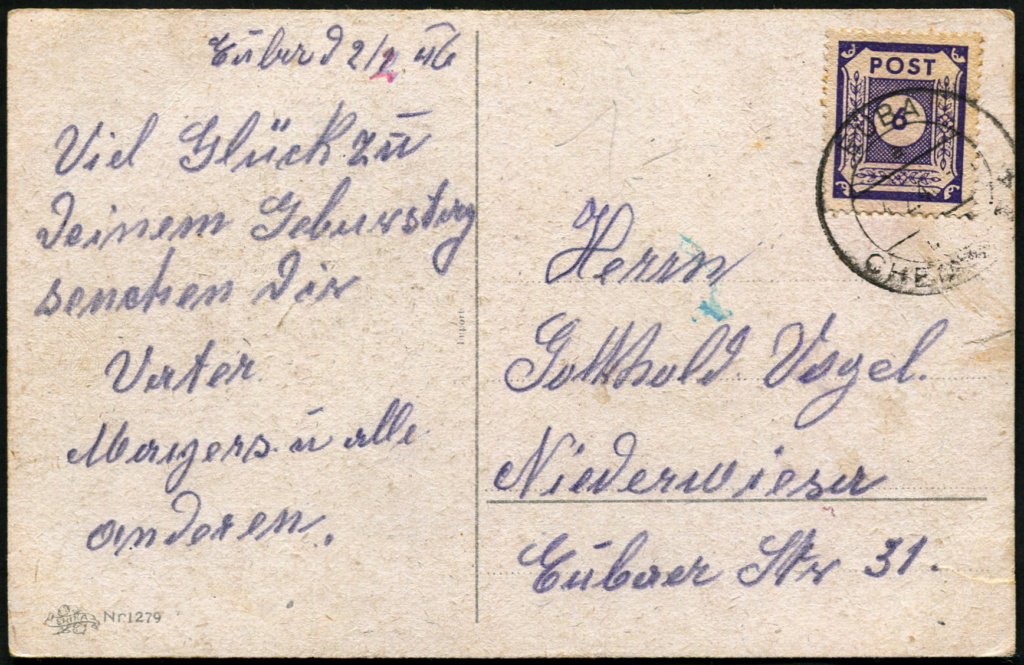 Euba d 2/2. 46
Viel Glück zu
Deinem Geburstag
senden Dir
Vater
Mayers. u alle
anderen.
Nr 1279
Import
POST
6
BA
CHEM
Herrn
Gotthold Vogel.
Niederwiesa
Eubaer Str 31.